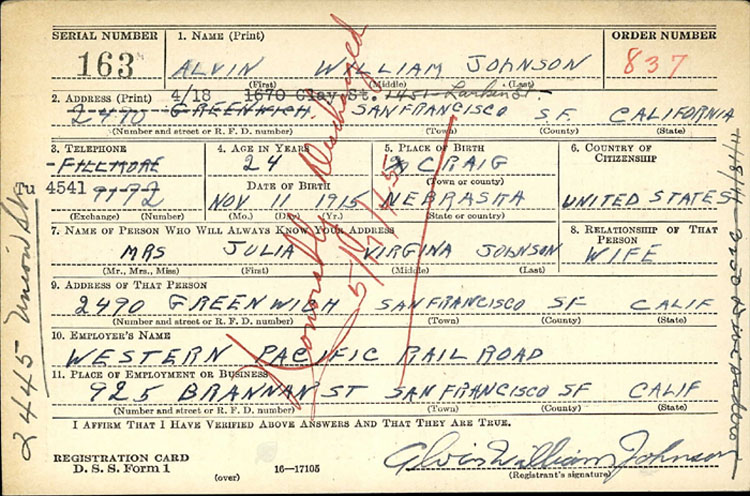 SERIAL NUMBER 1. NAME (Print) ORDER NUMBER
163 ALVIN WILLIAM JOHNSON 837
(First) (Middle) (Last)
4/18 1670 Clay St. 1451 Larkin St.
2. ADDRESS (Print)
2490 GREENWICH, SAN FRANCISCO S.F. CALIFORNIA
(Number and street or R. F. D. number) (Town) (County) (State)
3. TELEPHONE 4. AGE IN YEARS 5. PLACE OF BIRTH 6. COUNTRY OF CITIZENSHIP
FILLMORE 24 CRAIG
(Town or county)
Tu 4541 9172 DATE OF BIRTH
NOV 11 1915 NEBRASKA UNITED STATES
(Exchange) (Number) (Mo.) (Day) (Yr.) (State or country)
7. NAME OF PERSON WHO WILL ALWAYS KNOW YOUR ADDRESS 8. RELATIONSHIP OF THAT PERSON
MRS JULIA VIRGINA JOHNSON WIFE
(Mr., Mrs., Miss) (First) (Middle) (Last)
9. ADDRESS OF THAT PERSON
2490 GREENWICH SAN FRANCISCO SF CALIF
(Number and street or R. F. D. number) (Town) (County) (State)
10. EMPLOYER'S NAME
WESTERN PACIFIC RAIL ROAD
11. PLACE OF EMPLOYMENT OR BUSINESS
925 BRANNAN ST SAN FRANCISCO SF CALIF
(Number and street or R. F. D. number) (Town) (County) (State)
I AFFIRM THAT I HAVE VERIFIED ABOVE ANSWERS AND THAT THEY ARE TRUE.
REGISTRATION CARD
D. S. S. Form 1 (over) 16—17105
Alvin William Johnson
(Registrant's signature)
Honorably Discharged
2445 Union St.
11/18/41